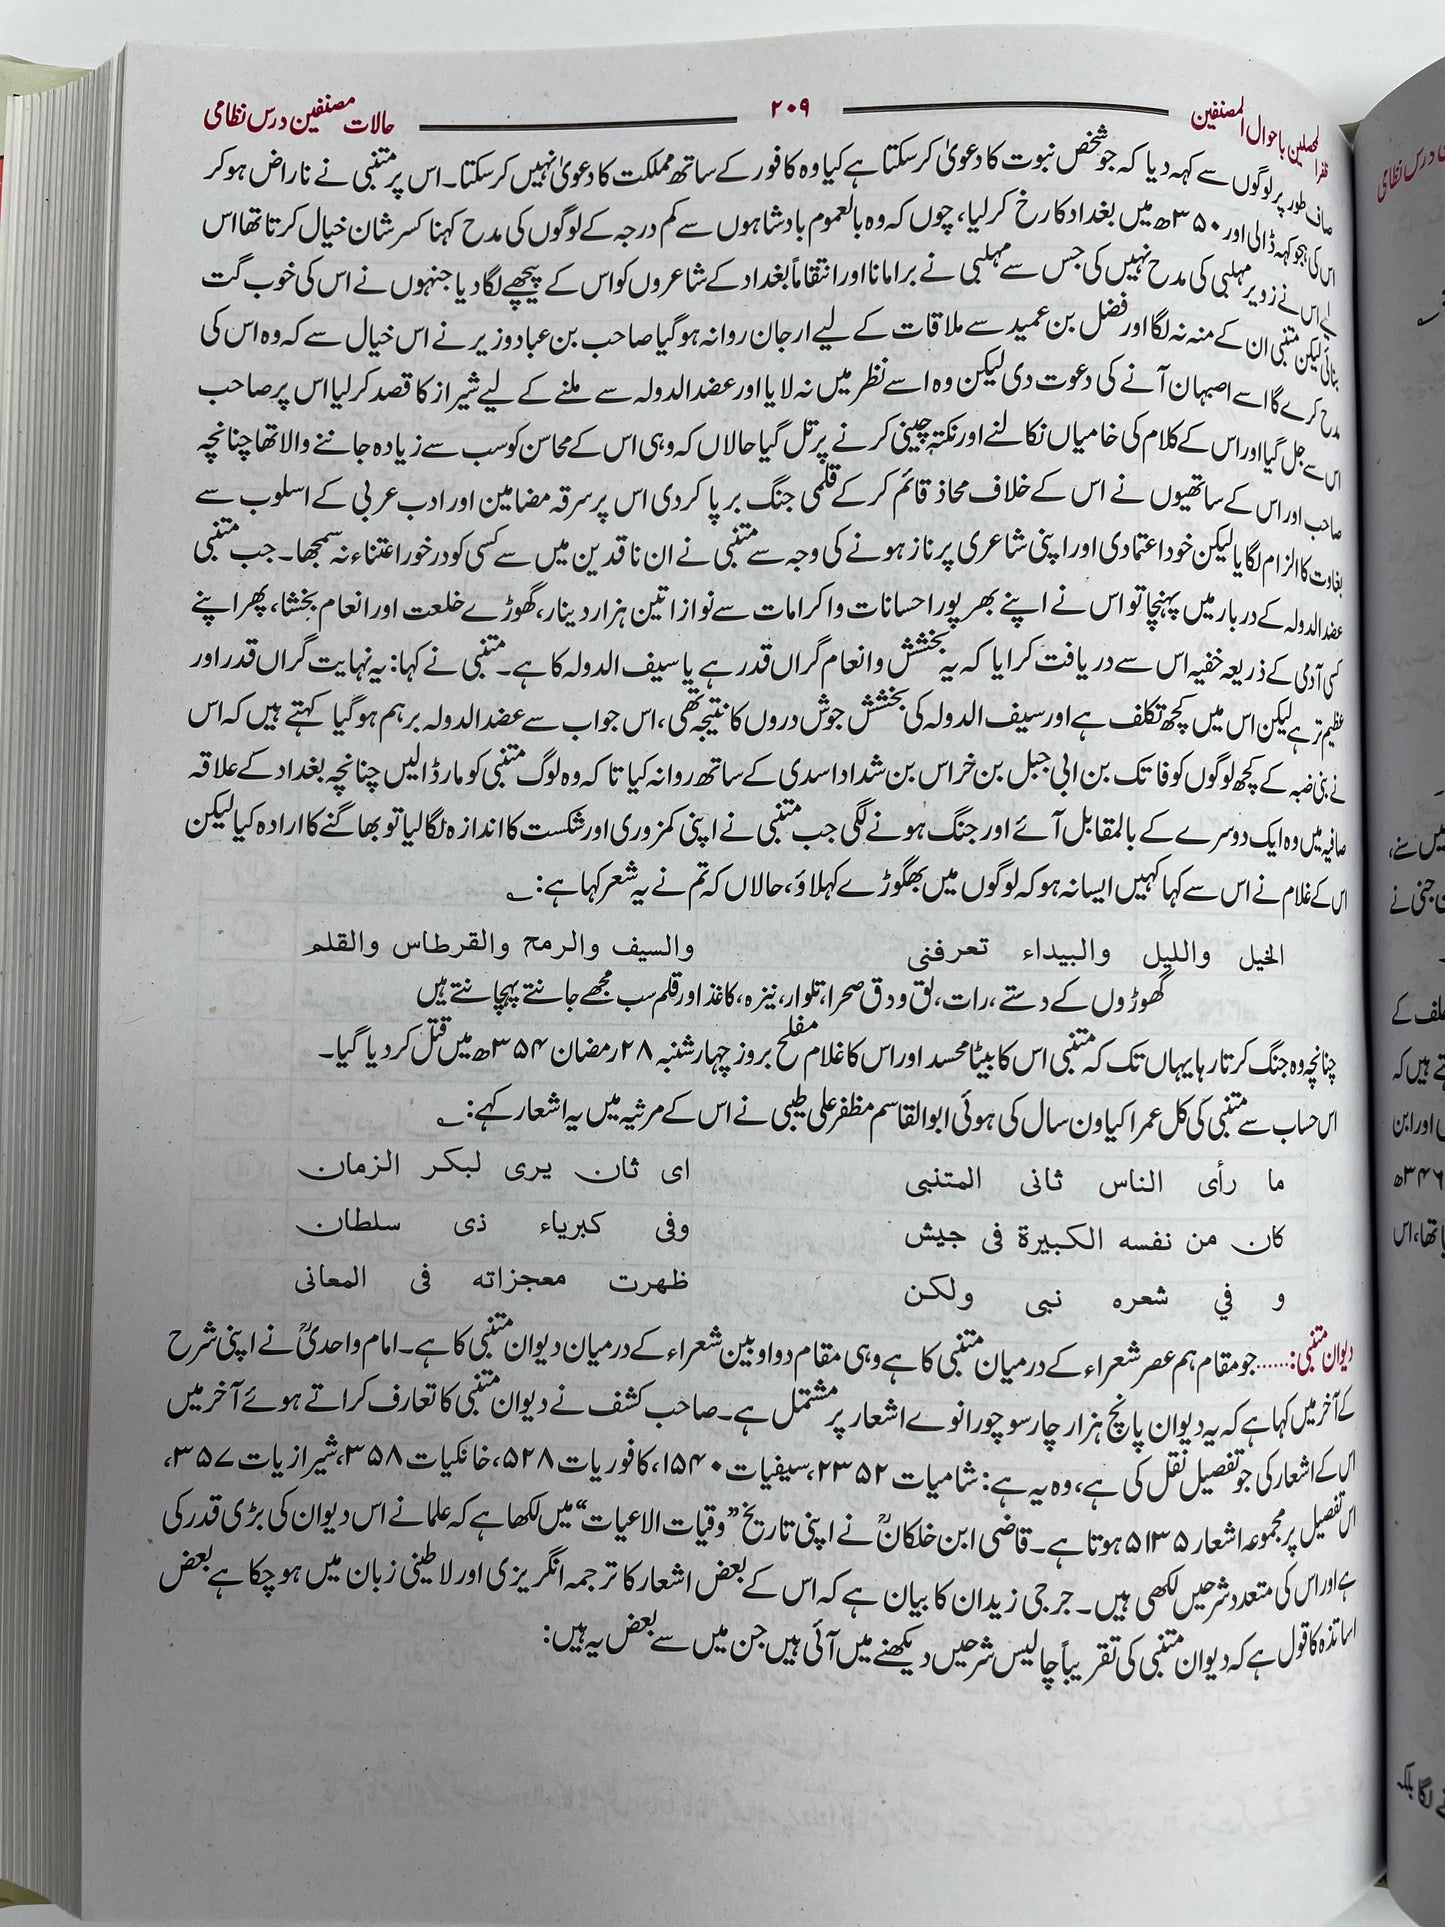 ظفر المحصلین باحوال المصنفین ۲۰۹ حالات مصنفین درس نظامی
صاف طور پر لوگوں سے کہہ دیا کہ جو شخص نبوت کا دعویٰ کر سکتا ہے کیا وہ کافور کے ساتھ مملکت کا دعویٰ نہیں کر سکتا۔ اس پر متنبی نے ناراض ہو کر
اس کی ہجو کہہ ڈالی اور ۳۵۰ھ میں بغداد کا رخ کر لیا، چوں کہ وہ بالعموم بادشاہوں سے کم درجہ کے لوگوں کی مدح کہنا کسر شان خیال کرتا تھا اس
لیے اس نے زویر مہلبی کی مدح نہیں کی جس سے مہلبی نے برا مانا اور انتقاماً بغداد کے شاعروں کو اس کے پیچھے لگا دیا جنہوں نے اس کی خوب گت
بنائی لیکن متنبی ان کے منہ نہ لگا اور فضل بن عمید سے ملاقات کے لیے ارجان روانہ ہو گیا صاحب بن عباد وزیر نے اس خیال سے کہ وہ اس کی
مدح کرے گا اسے اصبہان آنے کی دعوت دی لیکن وہ اسے نظر میں نہ لایا اور عضد الدولہ سے ملنے کے لیے شیراز کا قصد کر لیا اس پر صاحب
اس سے جل گیا اور اس کے کلام کی خامیاں نکالنے اور نکتہ چینی کرنے پر تل گیا حالاں کہ وہی اس کے محاسن کو سب سے زیادہ جاننے والا تھا چنانچہ
صاحب اور اس کے ساتھیوں نے اس کے خلاف محاذ قائم کر کے قلمی جنگ برپا کر دی اس پر سرقہ مضامین اور ادب عربی کے اسلوب سے
بغاوت کا الزام لگایا لیکن خود اعتمادی اور اپنی شاعری پر ناز ہونے کی وجہ سے متنبی نے ان ناقدین میں سے کسی کو درخور اعتناء نہ سمجھا۔ جب متنبی
عضد الدولہ کے دربار میں پہنچا تو اس نے اپنے بھرپور احسانات و اکرامات سے نوازا تین ہزار دینار، گھوڑے خلعت اور انعام بخشا، پھر اپنے
کسی آدمی کے ذریعہ خفیہ اس سے دریافت کرایا کہ یہ بخشش و انعام گراں قدر ہے یا سیف الدولہ کا ہے۔ متنبی نے کہا: یہ نہایت گراں قدر اور
عظیم تر ہے لیکن اس میں کچھ تکلف ہے اور سیف الدولہ کی بخشش جوش دروں کا نتیجہ تھی، اس جواب سے عضد الدولہ برہم ہو گیا کہتے ہیں کہ اس
نے بنی ضبہ کے کچھ لوگوں کو فاتک بن ابی جبل بن خراس بن شداد اسدی کے ساتھ روانہ کیا تا کہ وہ لوگ متنبی کو مار ڈالیں چنانچہ بغداد کے علاقہ
صافیہ میں وہ ایک دوسرے کے بالمقابل آئے اور جنگ ہونے لگی جب متنبی نے اپنی کمزوری اور شکست کا اندازہ لگا لیا تو بھاگنے کا ارادہ کیا لیکن
اس کے غلام نے اس سے کہا کہیں ایسا نہ ہو کہ لوگوں میں بھگوڑے کہلاؤ، حالاں کہ تم نے یہ شعر کہا ہے: ؎
الخیل واللیل والبیداء تعرفنی والسیف والرمح والقرطاس والقلم
گھوڑوں کے دستے، رات، لق و دق صحرا، تلوار، نیزہ، کاغذ اور قلم سب مجھے جانتے پہچانتے ہیں
چنانچہ وہ جنگ کرتا رہا یہاں تک کہ متنبی اس کا بیٹا محسد اور اس کا غلام مفلح بروز چہار شنبہ ۲۸ رمضان ۳۵۴ھ میں قتل کر دیا گیا۔
اس حساب سے متنبی کی کل عمر اکیاون سال کی ہوئی ابو القاسم مظفر علی طیبی نے اس کے مرثیہ میں یہ اشعار کہے: ؎
ما رأی الناس ثانی المتنبی ای ثان یری لبکر الزمان
کان من نفسه الکبیرة فی جیش وفی کبریاء ذی سلطان
و في شعره نبی ولکن ظهرت معجزاته فی المعانی
دیوان متنبی: ...... جو مقام ہم عصر شعراء کے درمیان متنبی کا ہے وہی مقام دواوین شعراء کے درمیان دیوان متنبی کا ہے۔ امام واحدیؒ نے اپنی شرح
کے آخر میں کہا ہے کہ یہ دیوان پانچ ہزار چار سو چورانوے اشعار پر مشتمل ہے۔ صاحب کشف نے دیوان متنبی کا تعارف کراتے ہوئے آخر میں
اس کے اشعار کی جو تفصیل نقل کی ہے، وہ یہ ہے: شامیات ۲۳۵۲، سیفیات ۱۵۴۰، کافوریات ۵۲۸، خانکیات ۳۵۸، شیرازیات ۳۵۷،
اس تفصیل پر مجموعہ اشعار ۵۱۳۵ ہوتا ہے۔ قاضی ابن خلکانؒ نے اپنی تاریخ ”وقیات الاعیات“ میں لکھا ہے کہ علما نے اس دیوان کی بڑی قدر کی
ہے اور اس کی متعدد شرحیں لکھی ہیں۔ جرجی زیدان کا بیان ہے کہ اس کے بعض اشعار کا ترجمہ انگریزی اور لاطینی زبان میں ہو چکا ہے بعض
اساتذہ کا قول ہے کہ دیوان متنبی کی تقریباً چالیس شرحیں دیکھنے میں آئی ہیں جن میں سے بعض یہ ہیں: